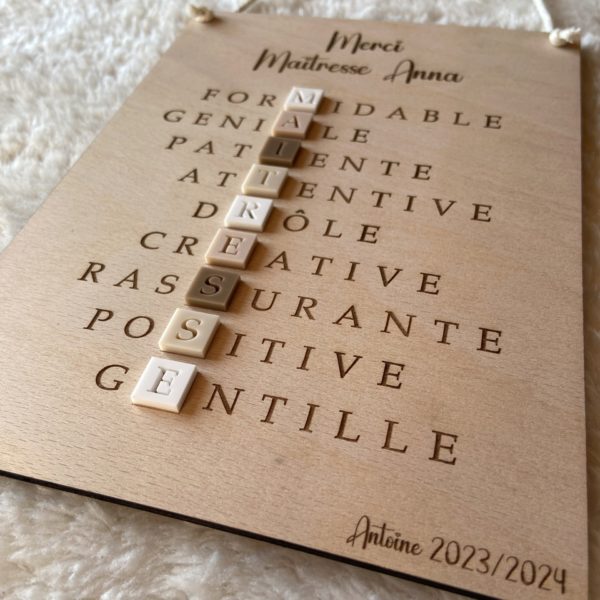 Merci
Maîtresse Anna
FORMIDABLE
GENIALE
PATIENTE
ATTENTIVE
DRÔLE
CREATIVE
RASSURANTE
POSITIVE
GENTILLE
Antoine 2023/2024